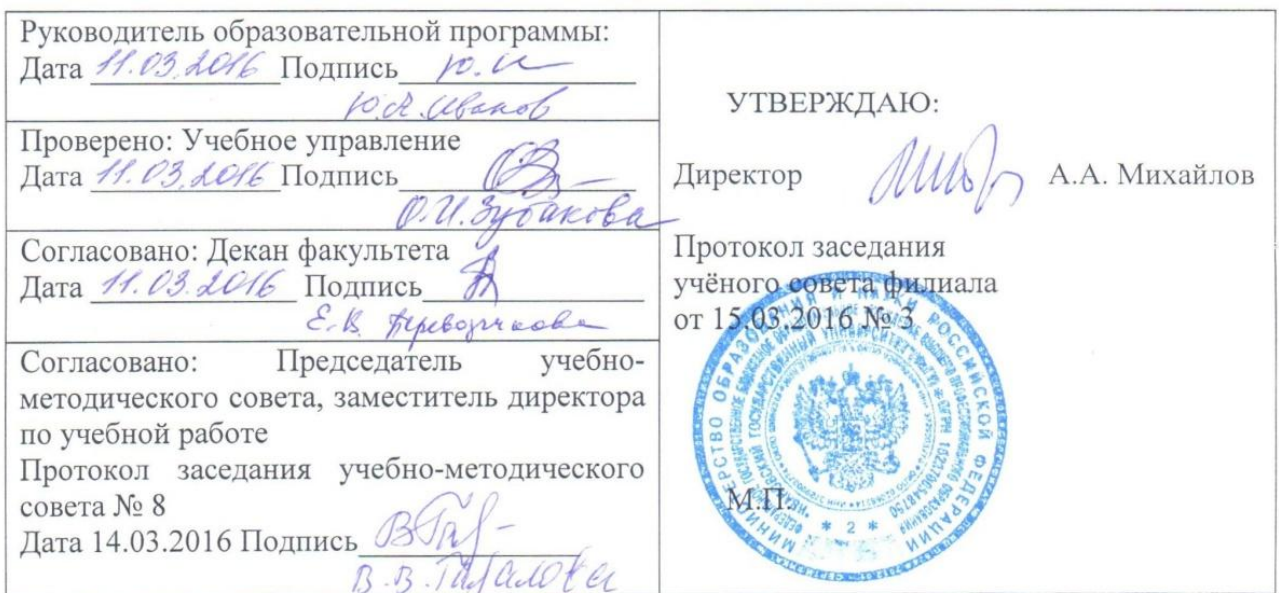 Руководитель образовательной программы:
Дата 11.03.2016 Подпись Ю.И
Ю.А. Иванов
Проверено: Учебное управление
Дата 11.03.2016 Подпись
О.И. Зубакова
Согласовано: Декан факультета
Дата 11.03.2016 Подпись
Е.В.
Согласовано: Председатель учебно-
методического совета, заместитель директора
по учебной работе
Протокол заседания учебно-методического
совета № 8
Дата 14.03.2016 Подпись
В.В.
УТВЕРЖДАЮ:
Директор А.А. Михайлов
Протокол заседания
учёного совета филиала
от 15.03.2016 № 3
МИНИСТЕРСТВО ОБРАЗОВАНИЯ И НАУКИ РОССИЙСКОЙ ФЕДЕРАЦИИ
М.П.
* 2 *